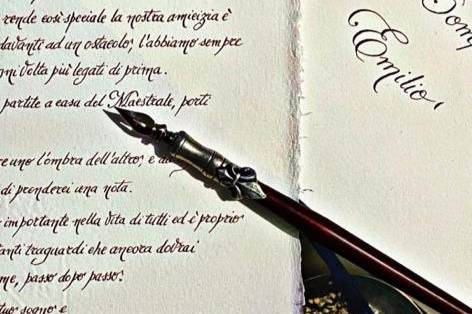 rende così speciale la nostra amicizia è
davanti ad un ostacolo, l'abbiamo sempre
volta più legati di prima.
partite a casa del Maestrale, porti
uno l'ombra dell'altro, e
di prenderci una nota.
importante nella vita di tutti ed è proprio
traguardi che ancora dovrai
passo dopo passo!
sogno e
Emilio,